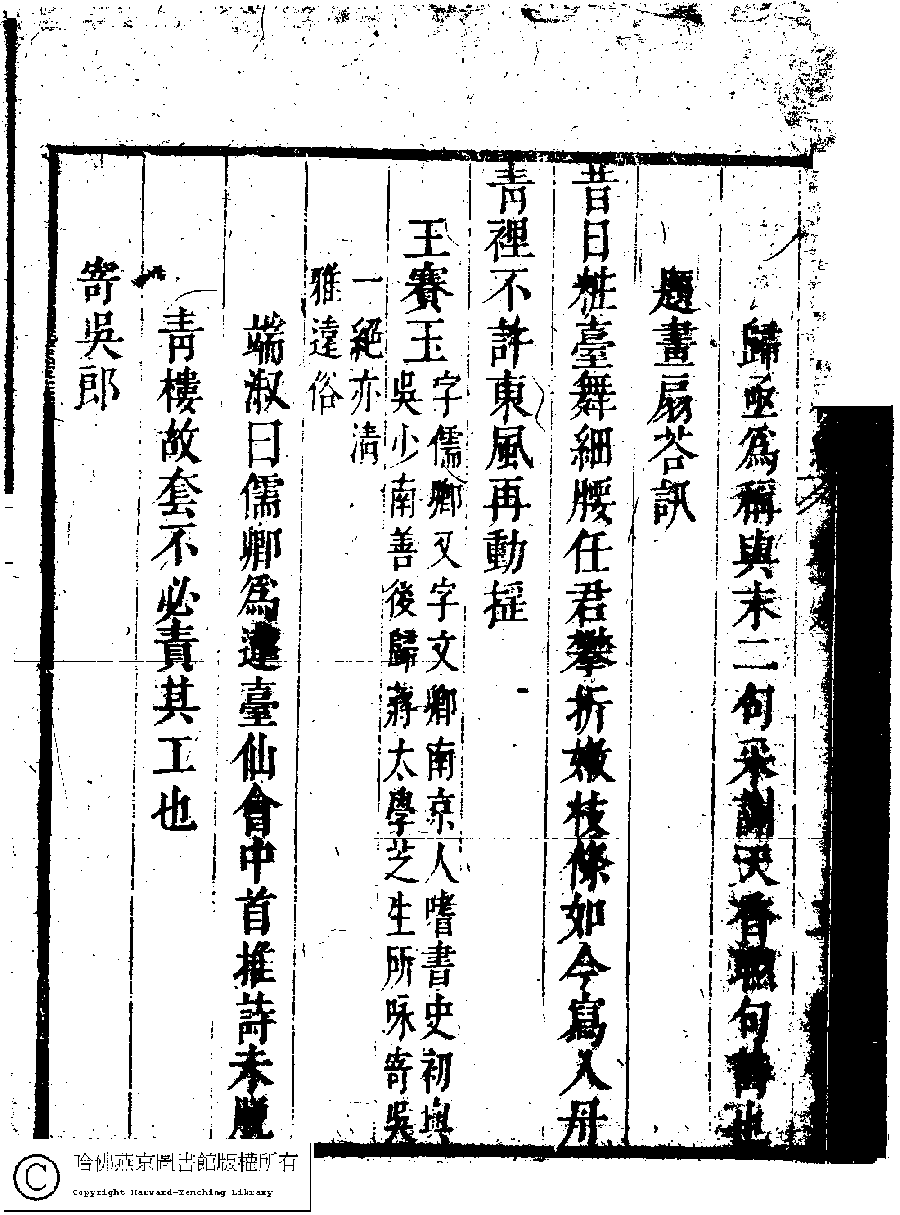 歸亟爲稱與末二句采謝天香聯句舊也
題畫扇荅訊
昔日粧臺舞細腰任君攀折嫩枝條如今寫入丹
青裡不許東風再動揺
王賽玉
字儒卿又字文卿南京人嗜書史初與
吳少南善後歸蔣太學芝生所咏寄吳
一絕亦清
雅遠俗
端淑曰儒卿爲蓮臺仙會中首推詩未脫
青樓故套不必責其工也
寄吳郎
哈佛燕京圖書館版權所有
Copyright Harvard-Yenching Library